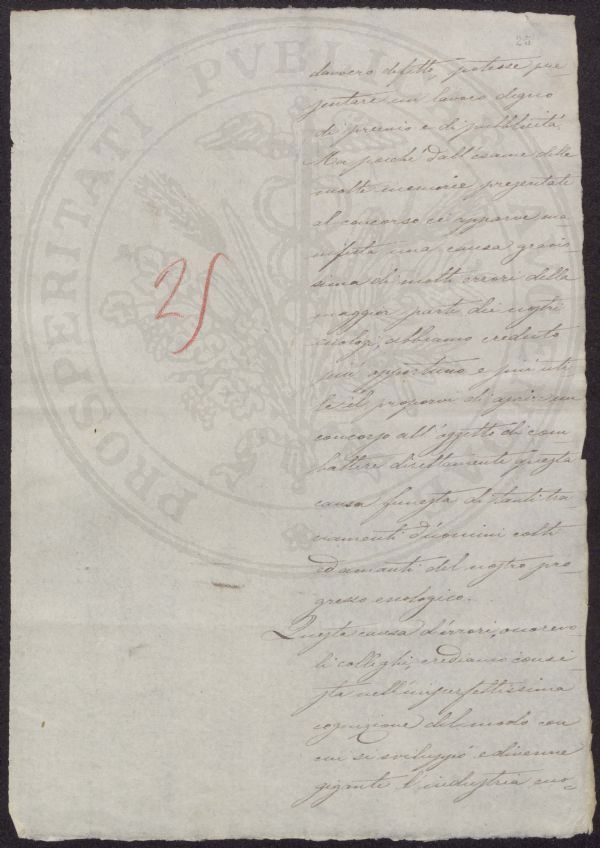 23
davvero difetto, potesse pre
sentare un lavoro degno
di premio e di pubblicità.
Ma poichè dall'esame delle
molte memorie presentate
al concorso ci apparve ma
nifesta una causa gravis
sima di molti errori della
maggior parte dei nostri
enologi, abbiamo creduto
più opportuno e più uti
le il proporvi di aprire un
concorso all'oggetto di com
battere direttamente questa
causa funesta di tanti tra
viamenti d'uomini colti
ed amanti del nostro pro
gresso enologico.
Questa causa d'errori, onorevo
li colleghi, crediamo consi
sta nell'imperfettissima
cognizione del modo con
cui si sviluppò e divenne
gigante l'industria eno-
25
PROSPERITATI PVBLICAE